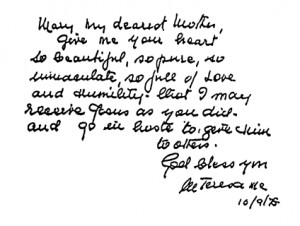 Mary my dearest Mother,
give me your heart
so beautiful, so pure, so
immaculate, so full of love
and humility - that I may
receive Jesus as you did -
and go in haste to give Him
to others.
God bless you
M Teresa mc
10/9/78